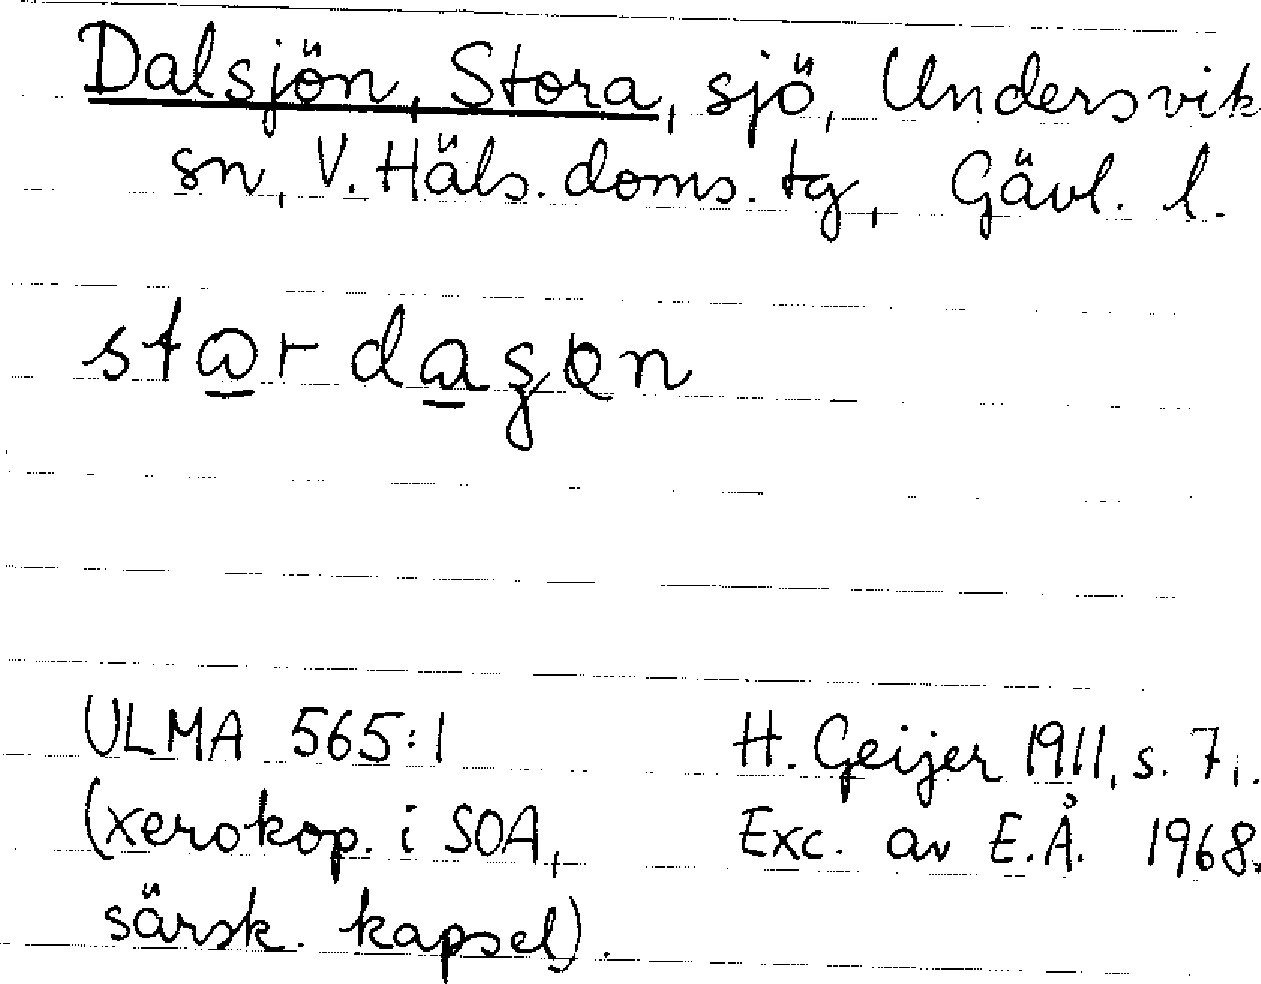 Dalsjön, Stora, sjö, Undersvik
sn, V. Häls. doms. tg, Gävl. l.
ULMA 565:1
(xerokop. i SOA,
särsk. kapsel).
H. Geijer 1911, s. 71.
Exc. av E.Å. 1968.